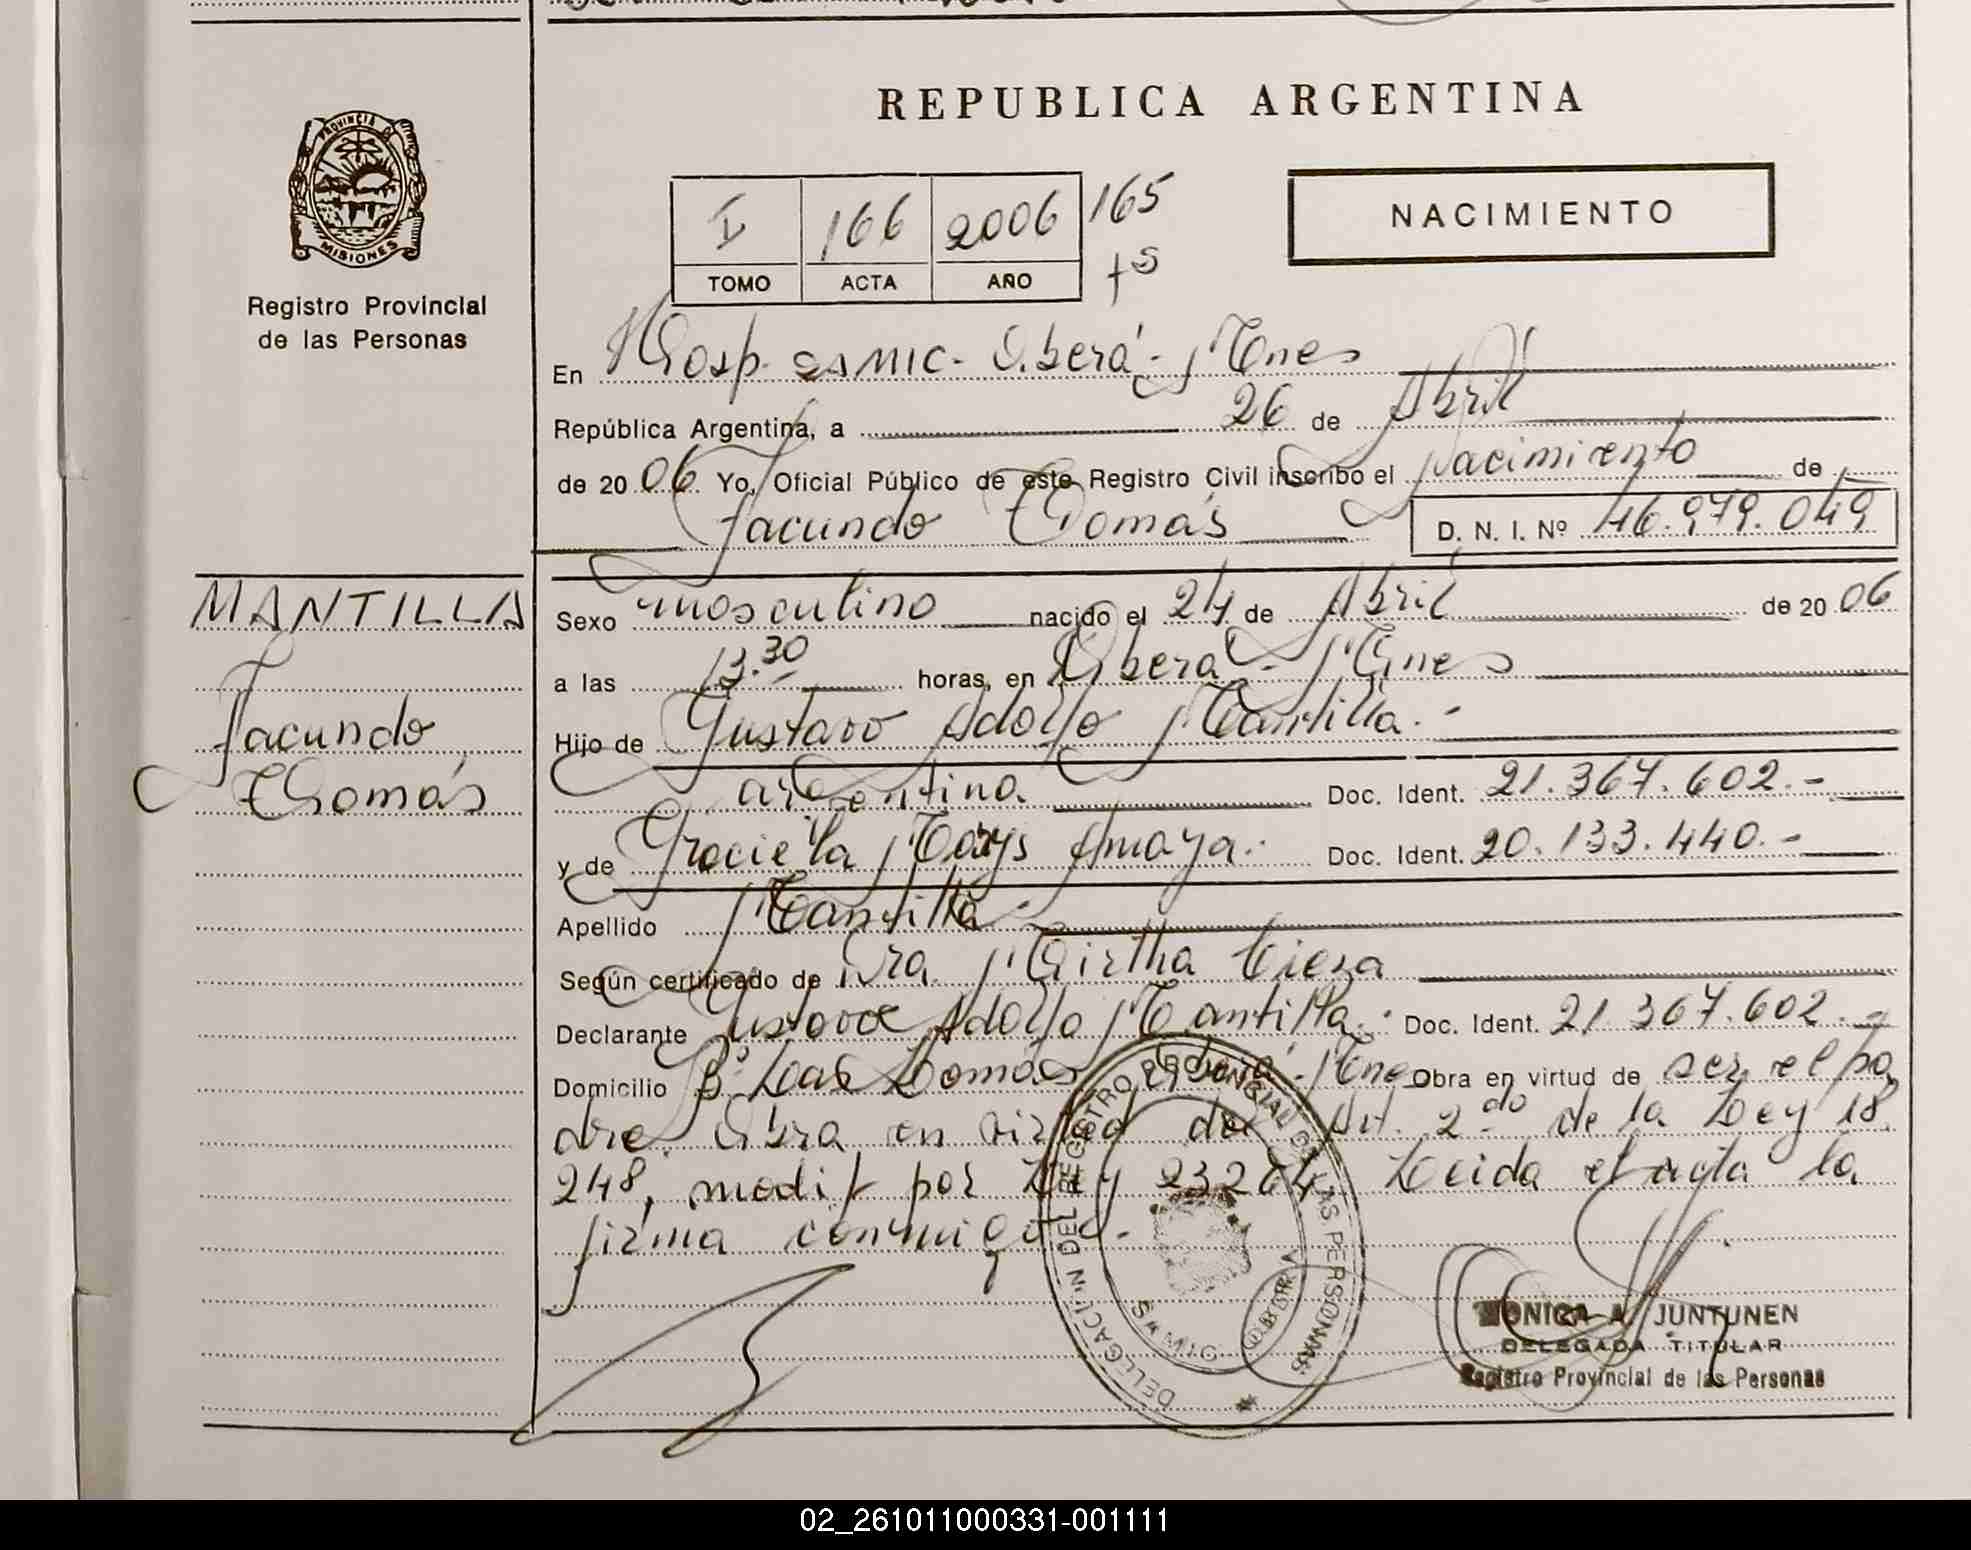 REPUBLICA ARGENTINA
PROVINCIA DE
MISIONES
Registro Provincial
de las Personas
I 166 2006 165
TOMO ACTA AÑO fs
NACIMIENTO
En Hosp. SAMIC - Oberá - Mnes
República Argentina, a 26 de Abril
de 2006 Yo, Oficial Público de este Registro Civil inscribo el nacimiento de
Facundo Thomás D. N. I. Nº 46.979.049
MANTILLA
Facundo
Thomás
Sexo masculino nacido el 24 de Abril de 2006
a las 13.30 horas, en Oberá - Mnes
Hijo de Gustavo Adolfo Mantilla.-
argentina Doc. Ident. 21.367.602.-
y de Graciela Amaya.- Doc. Ident. 20.133.440.-
Apellido Mantilla.-
Según certificado de Dra. Mirtha
Declarante Gustavo Adolfo Mantilla.- Doc. Ident. 21.367.602.-
Domicilio Bº Las Lomas Oberá - Mnes Obra en virtud de ser el pa
dre. Obra en virtud del Art. 2do de la Ley 18.
248, modif por Ley 23264. Leida el acta la
firma conmigo.-
DELEGACIÓN DEL REGISTRO PROVINCIAL DE LAS PERSONAS
OBERA
MISIONES
MONICA A. JUNTUNEN
DELEGADA TITULAR
Registro Provincial de las Personas
02_261011000331-001111